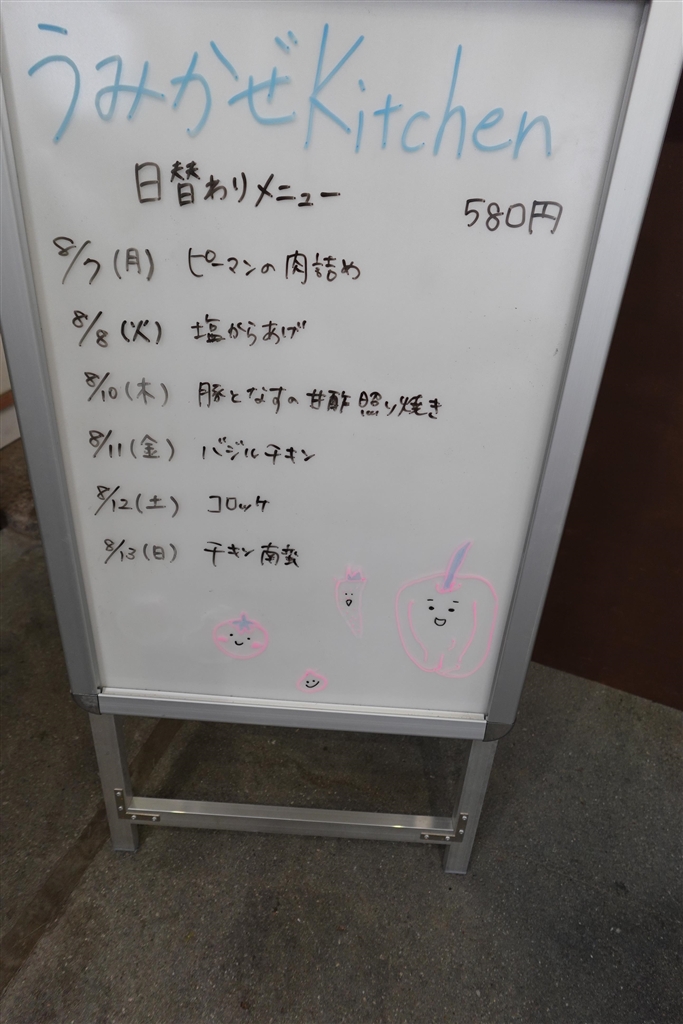 うみかぜKitchen
日替わりメニュー
580円
8/7(月) ピーマンの肉詰め
8/8(火) 塩からあげ
8/10(木) 豚となすの甘酢照り焼き
8/11(金) バジルチキン
8/12(土) コロッケ
8/13(日) チキン南蛮